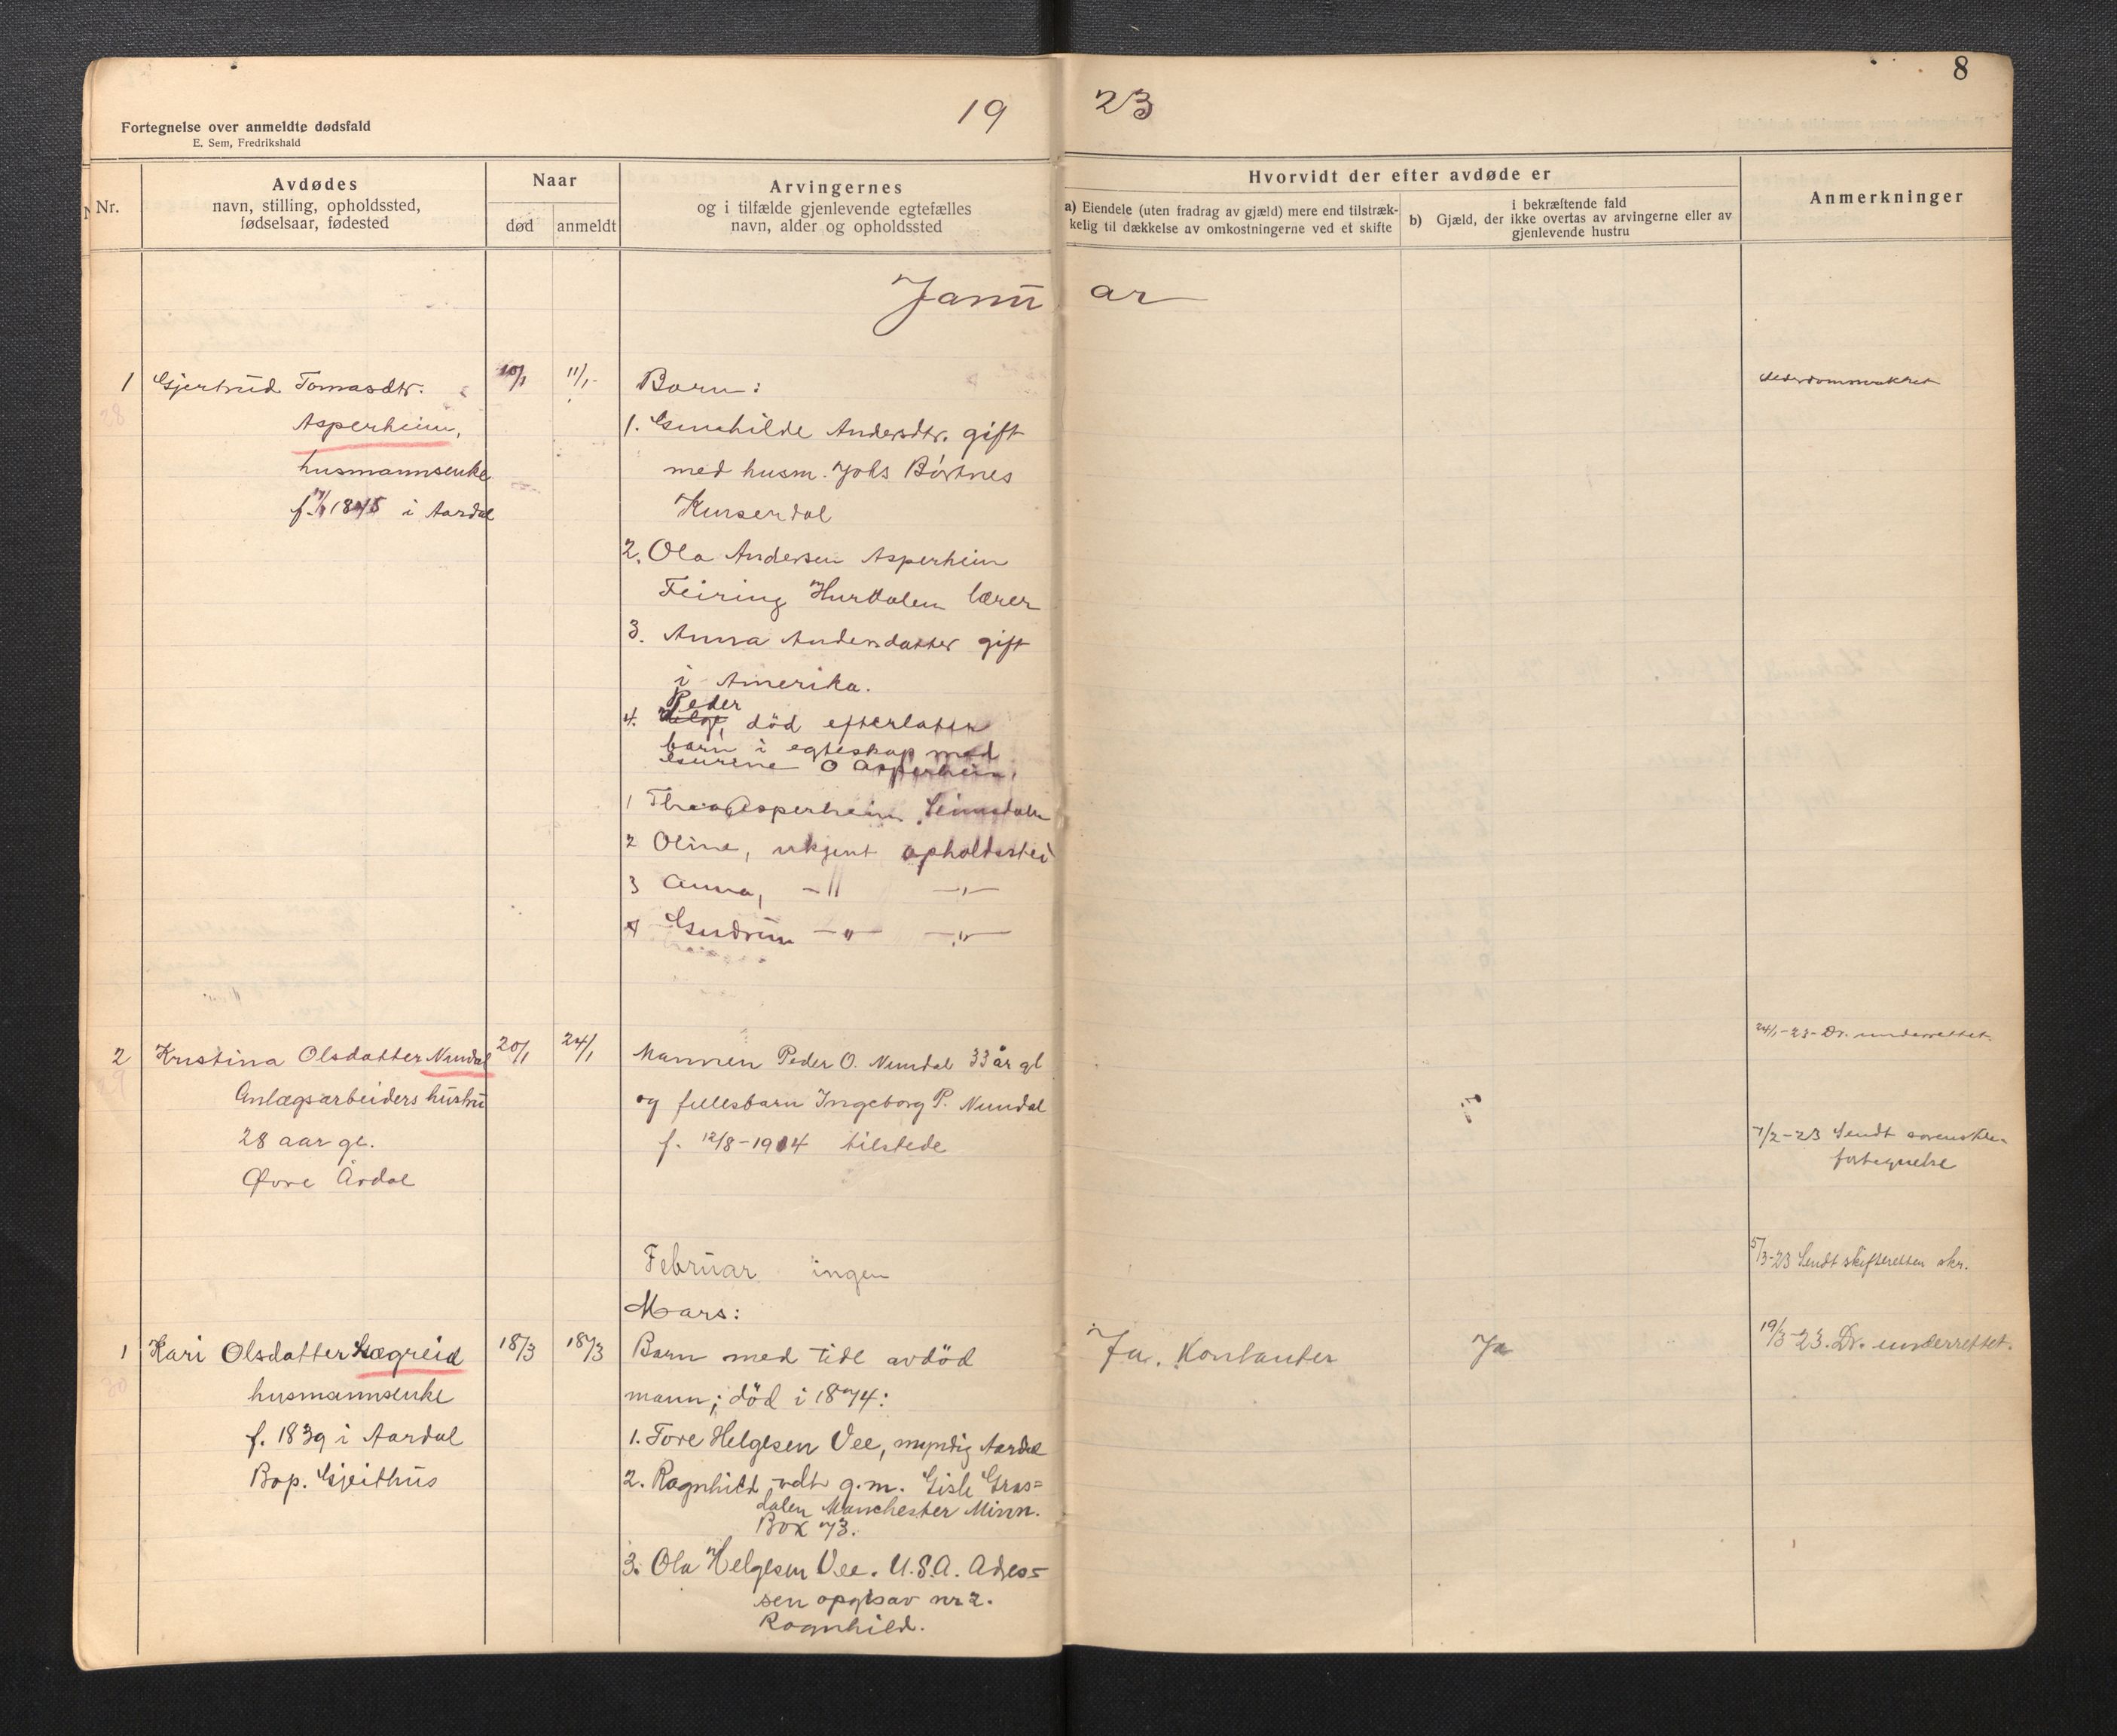 8
19 23
Fortegnelse over anmeldte dødsfald
E. Sem, Fredrikshald
Nr.
Avdødes
navn, stilling, opholdssted,
fødselsaar, fødested
Naar
død
anmeldt
Arvingernes
og i tilfælde gjenlevende egtefælles
navn, alder og opholdssted
Hvorvidt der efter avdøde er
a) Eiendele (uten fradrag av gjæld) mere end tilstræk-
kelig til dækkelse av omkostningerne ved et skifte
i bekræftende fald
b) Gjæld, der ikke overtas av arvingerne eller av
gjenlevende hustru
Anmerkninger
Janu ar
1 Gjertrud Tomasdtr. 10/1 11/1 Born:
28
Asperheim,
husmannsenke
1845 i Aardal
1. Gunhilde Andersdtr. gift
med husm. Johs Börtnes
2. Ola Andersen Asperheim
Feiring Hurdalen lærer
3. Anna Andersdatter gift
i Amerika.
Peder
4. død efterlater
barn i egteskap med
O Asperheim,
1 Asperheim
2 Oline, ukjent opholdssted
3 Anna, -"- -"-
4 Gudrun -"- -"-
2 Kristina Olsdatter Nundal 20/1 24/1 Mannen Peder O. Nundal 33 år gl 24/1-23 Dr. underrettet.
29
Anlægsarbeiders hustru og fellesbarn Ingeborg P. Nundal ?
28 aar gl. f. 12/8-1914 tilstede 7/2-23 Sendt
Øvre Årdal fortegnelse
Februar ingen 5/3-23 Sendt skifteretten skr.
Mars:
1 Kari Olsdatter Lægreid 18/3 18/3 Barn med tidl avdöd Ja. Kontanter Ja 19/3-23. Dr. underrettet.
30
husmannsenke mann; död i 1874:
f. 1839 i Aardal 1. Tore Helgesen Vee, myndig Aardal
Bop. Gjeithus 2. Ragnhild g.m. Gisle Gras=
dalen Manchester Minn.
Box 73.
3. Ola Helgesen Vee. U.S.A. Adres=
sen opgis av nr 2.
Ragnhild.